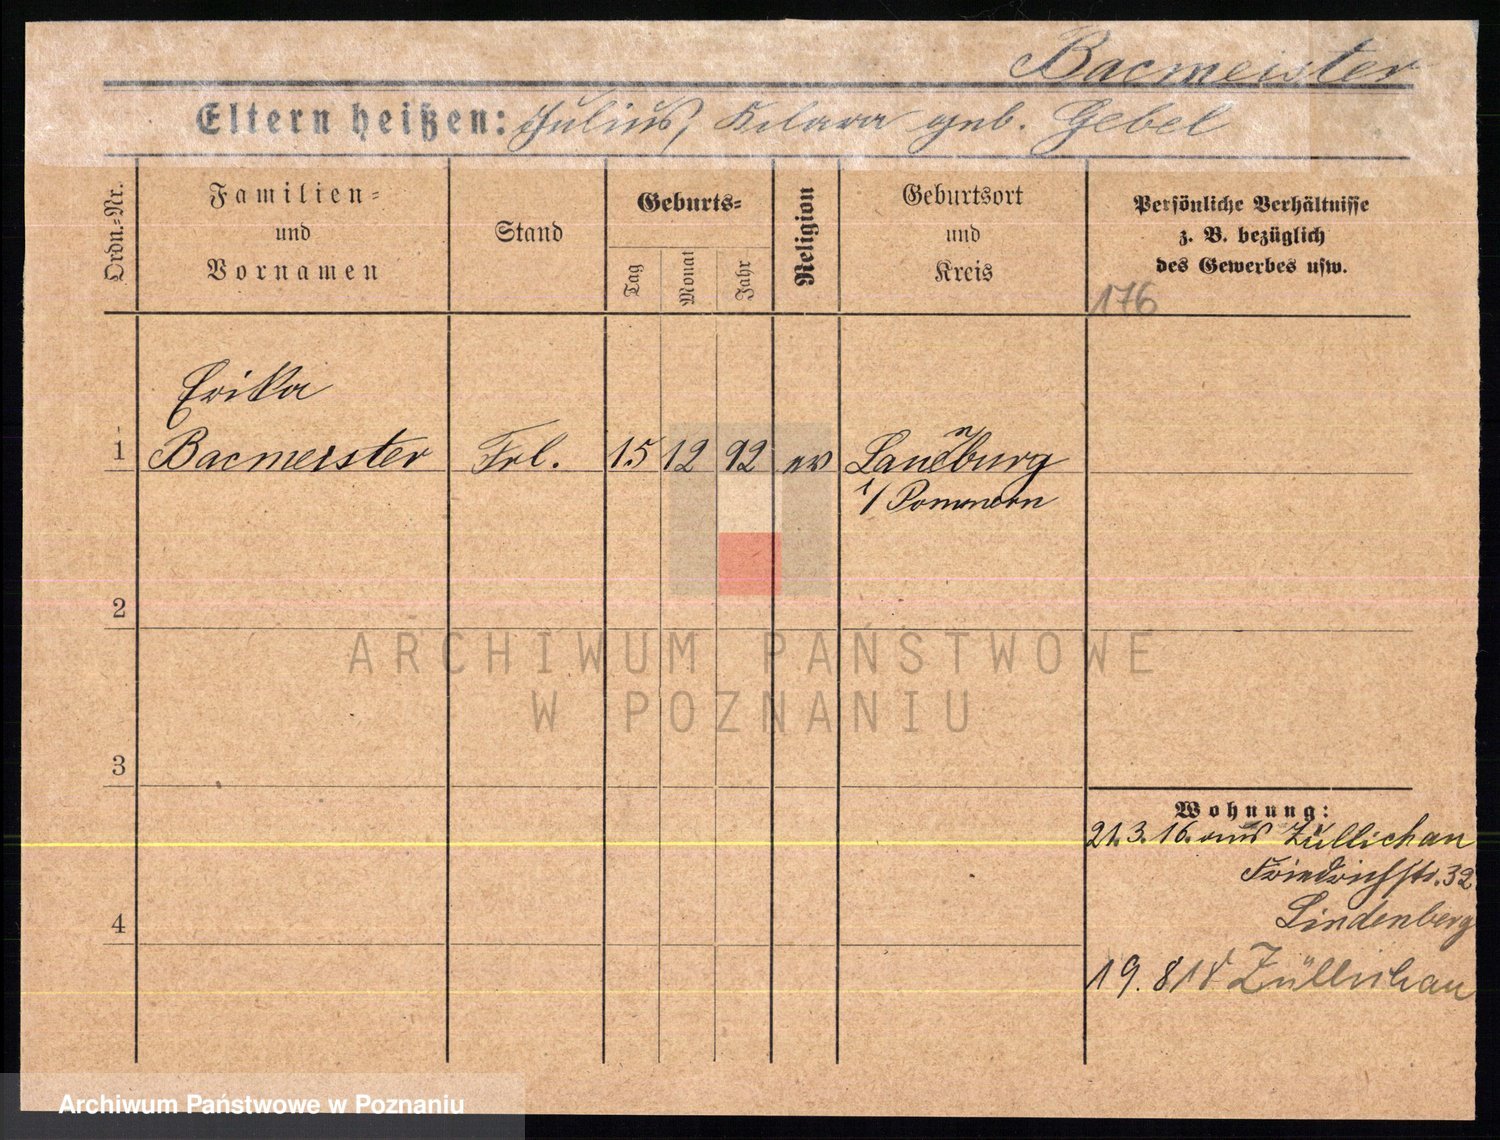 Bacmeister
Eltern heißen: Julius, Klara geb. Gebel
Ordn.-Nr.
Familien-
und
Vornamen
Stand
Geburts-
Tag
Monat
Jahr
Religion
Geburtsort
und
Kreis
Persönliche Verhältnisse
z. B. bezüglich
des Gewerbes usw.
176
Erika
1 Bacmeister Frl. 15 12 92 ev Lauenburg
i/ Pommern
2
3
4
Wohnung:
21.3.16. aus Züllichau
Friedrichstr. 32
Lindenberg
19. 8 18 Züllichau
ARCHIWUM PAŃSTWOWE
W POZNANIU
Archiwum Państwowe w Poznaniu